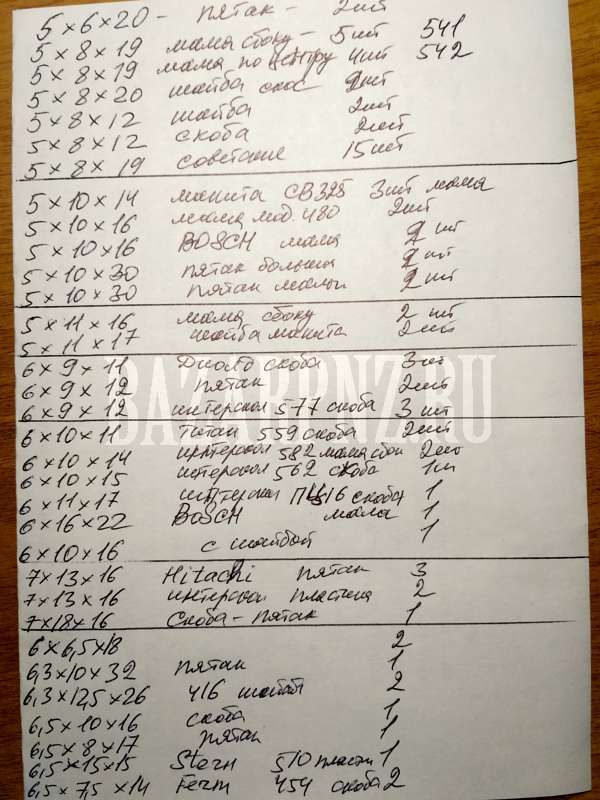 5 x 6 x 20 - пятак - 2шт
5 x 8 x 19 мама сбоку - 5шт 541
5 x 8 x 19 мама по центру 4шт 542
5 x 8 x 20 шайба скос 2шт
5 x 8 x 12 шайба 2шт
5 x 8 x 12 скоба 2шт
5 x 8 x 19 советские 15шт
5 x 10 x 14 макита CB325 3шт мама
5 x 10 x 16 мама мод. 480 2шт
5 x 10 x 16 BOSCH мама 2 шт
5 x 10 x 30 пятак больш 2 шт
5 x 10 x 30 пятак малы 2 шт
5 x 11 x 16 мама сбоку 2 шт
5 x 11 x 17 шайба макита 2шт
6 x 9 x 11 Диолд скоба 3шт
6 x 9 x 12 пятак 2шт
6 x 9 x 12 интерскол 577 скоба 3 шт
BAZARPNZ.RU
6 x 10 x 11 Титан 559 скоба 2шт
6 x 10 x 14 интерскол 582 мама сбок 2шт
6 x 10 x 15 интерскол 562 скоба 1шт
6 x 11 x 17 интерскол 416 скоба 1
6 x 16 x 22 BOSCH мама 1
6 x 10 x 16 с шайбой 1
7 x 13 x 16 Hitachi пятак 3
7 x 13 x 16 интерскол пластина 2
7 x 18 x 16 Скоба - пятак 1
6 x 6,5 x 18 2
6,3 x 10 x 32 пятак 1
6,3 x 12,5 x 26 416 шайба 2
6,5 x 10 x 16 скоба 1
6,5 x 8 x 17 пятак 1
6,5 x 15 x 15 Stern 510 пласти 1
6,5 x 7,5 x 14 Ferm 454 скоба 2